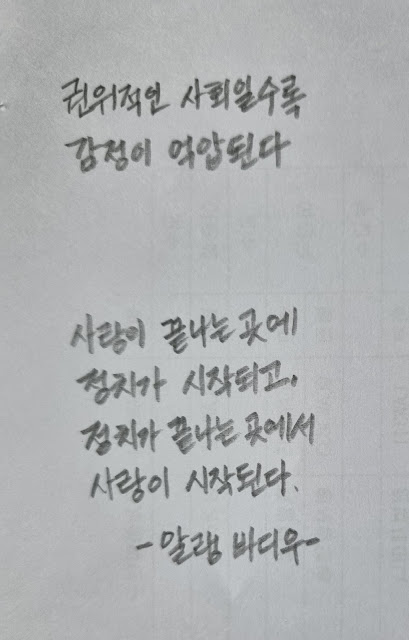 권위적인 사회일수록
감정이 억압된다
사랑이 끝나는 곳에
정치가 시작되고,
정치가 끝나는 곳에서
사랑이 시작된다.
-알랭 바디우-